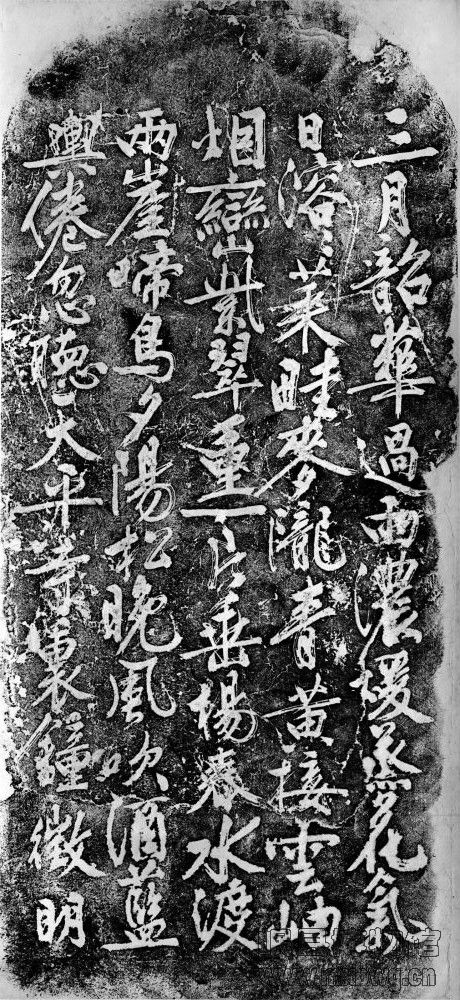 三月韶華過雨濃煖蒸花氣
日溶〻菜畦麥隴青黃接雲岫
烟巒紫翠重一片垂楊春水渡
兩崖啼鳥夕陽松晚風吹酒藍
輿倦忽聽大平寺裏鐘徵明